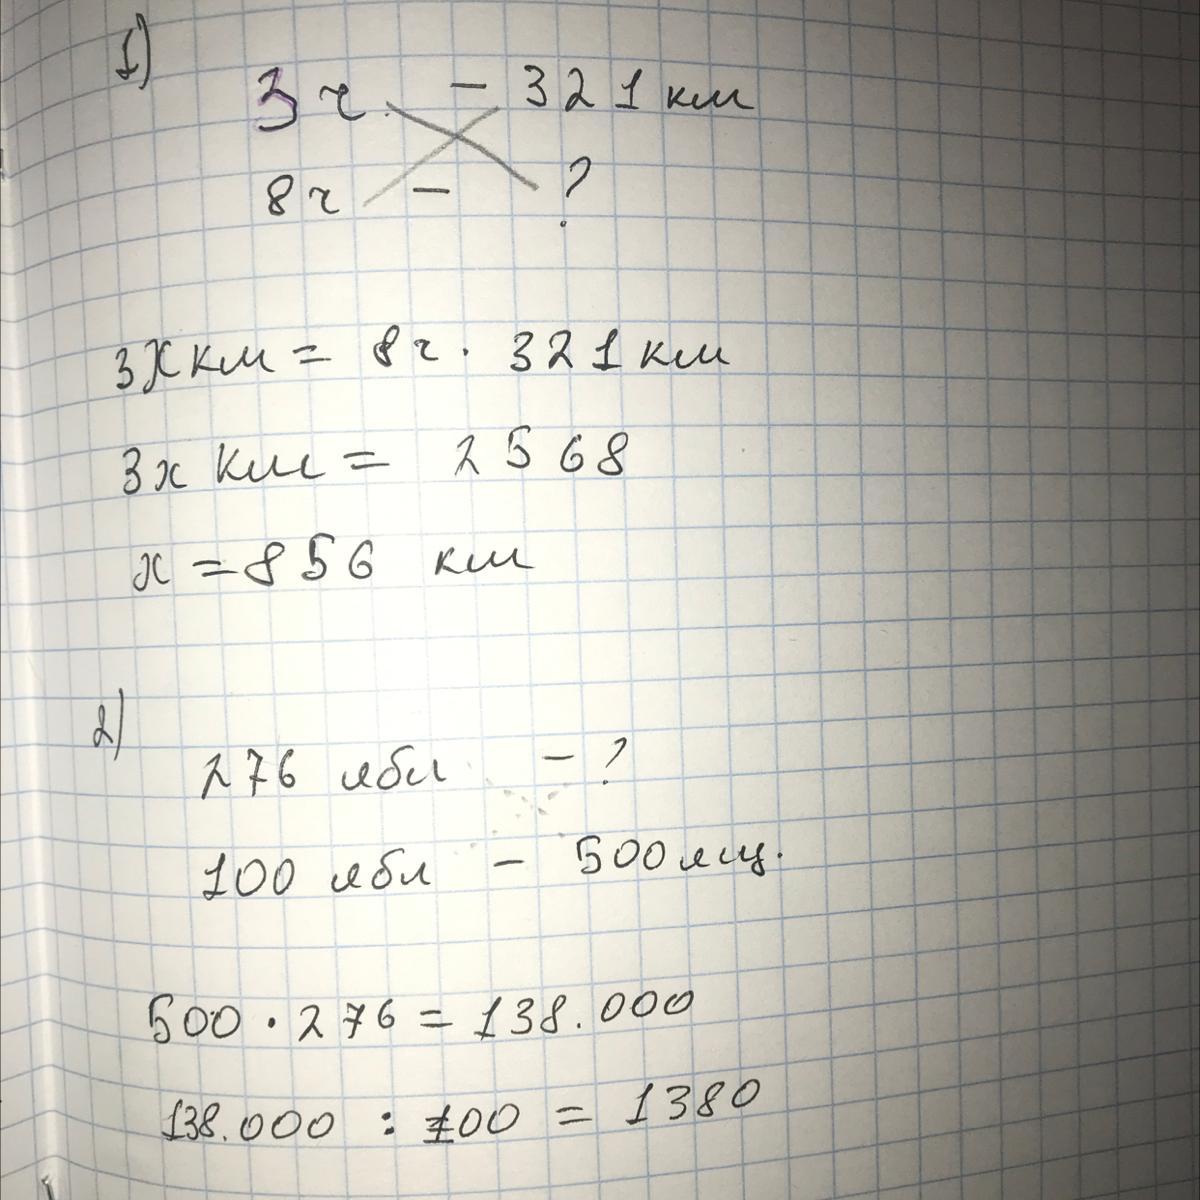 1)
3 ч - 321 км
8ч - ?
3х км = 8ч · 321 км
3х км = 2568
х = 856 км
2)
276 ябл - ?
100 ябл - 500 ящ.
500 · 276 = 138.000
138.000 : 100 = 1380